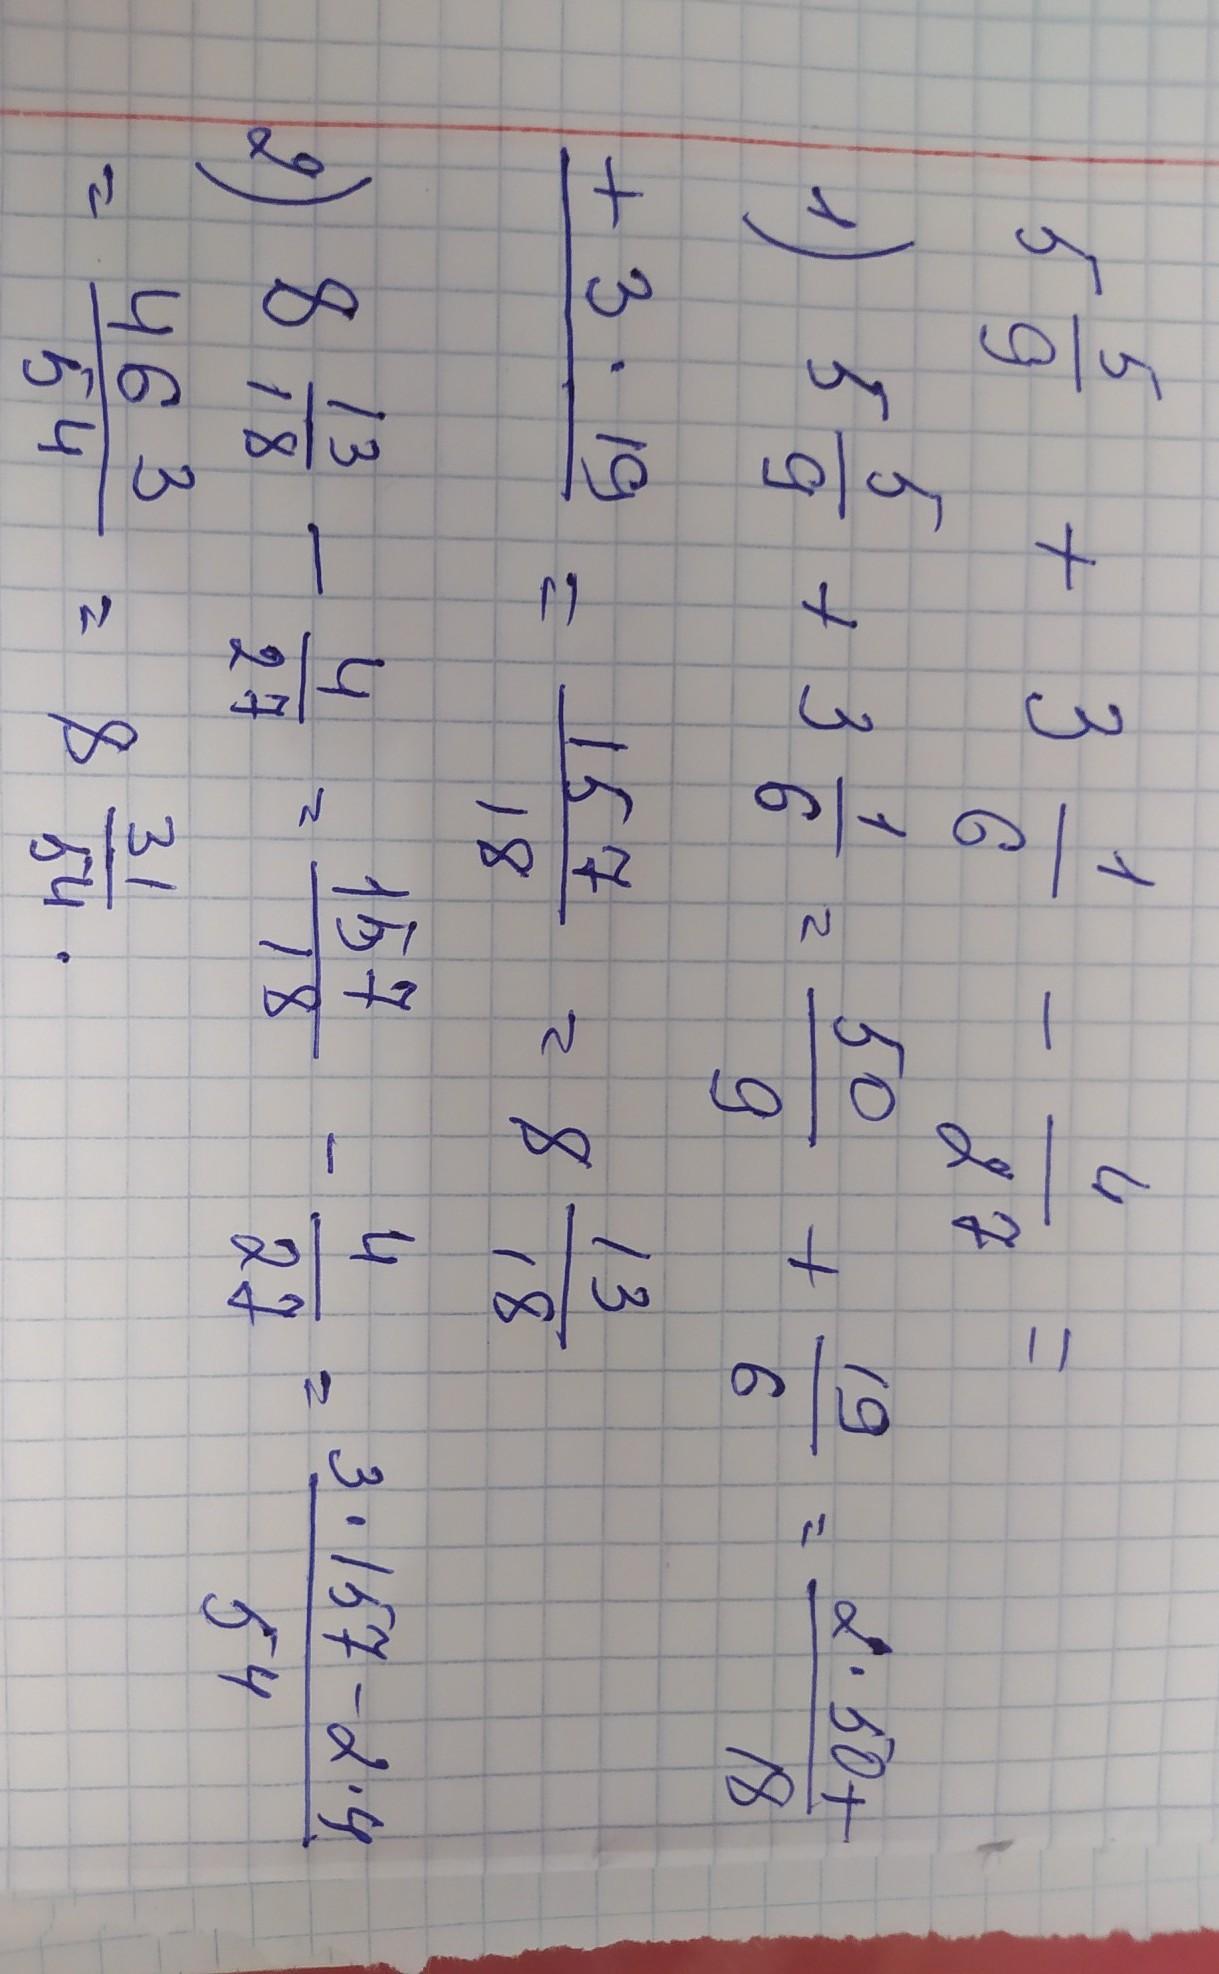 5 5/9 + 3 1/6 - 4/27 =
1) 5 5/9 + 3 1/6 = 50/9 + 19/6 = 2·50+/18
+3·19 = 157/18 = 8 13/18
2) 8 13/18 - 4/27 = 157/18 - 4/27 = 3·157-2·4/54
= 463/54 = 8 31/54.